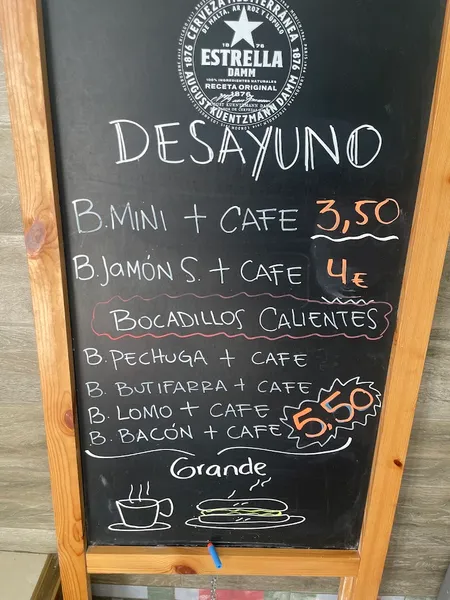 CERVEZA MEDITERRÁNEA
DE MALTA, ARROZ Y LÚPULO
1876
1876
ESTRELLA
18 76
DAMM
100% INGREDIENTES NATURALES
RECETA ORIGINAL
1876
AUGUST KUENTZMANN DAMM
DESAYUNO
B.MINI + CAFE 3,50
B.JAMÓN S. + CAFE 4€
BOCADILLOS CALIENTES
B.PECHUGA + CAFE
B. BUTIFARRA + CAFE
B. LOMO + CAFE 5,50
B. BACÓN + CAFE
Grande